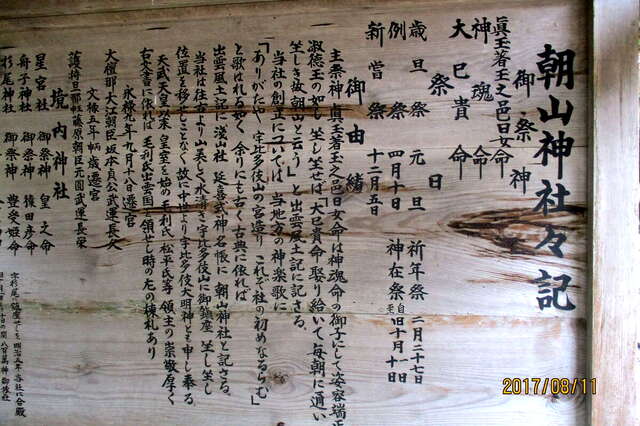 朝山神社々記
御祭神
眞玉着玉之邑日女命
神魂命
大己貴命
祭日
歳旦祭 元旦 祈年祭 二月二十七日
例祭 四月十日 神在祭 自旧十月一日 至旧十月十日
新嘗祭 十二月五日
御由緒
主祭神 眞玉着玉之邑日女命は神魂命の御子にして姿容端正
淑徳玉の如し 坐し坐せば「大己貴命 娶り給いて毎朝に通い
坐しき故 朝山と云う」と出雲風土記に記さる
当社の創立については 当地方の神楽歌に
「ありがたや 宇比多伎山の宮造り これぞ社の初めなるらむ」
と歌はれる如く 余りにも古く古典に依れば
出雲風土記に浅山社 延喜式神名帳に 朝山神社と記さる
当社は往古より山美しく水清き宇比多伎山に御鎮座 坐し坐し
位置を移すことなく 故に中世より宇比多伎大明神とも申し奉る
天武天皇以来 皇室を始め毛利氏 松平氏等 領主の崇敬厚く
古文書に依れば 毛利氏出雲国を領せし時の左の棟札あり
永禄九年九月十八日遷宮
大檀那大江朝臣坂本貞公武運長久
文禄五年丙歳遷宮
護持旦那佐藤原朝臣元圓武運長栄
境内神社
星宮社 御祭神 星之命
舟子神社 御祭神 猿田彦命
杉尾神社 御祭神 豊受姫命
2017/08/11